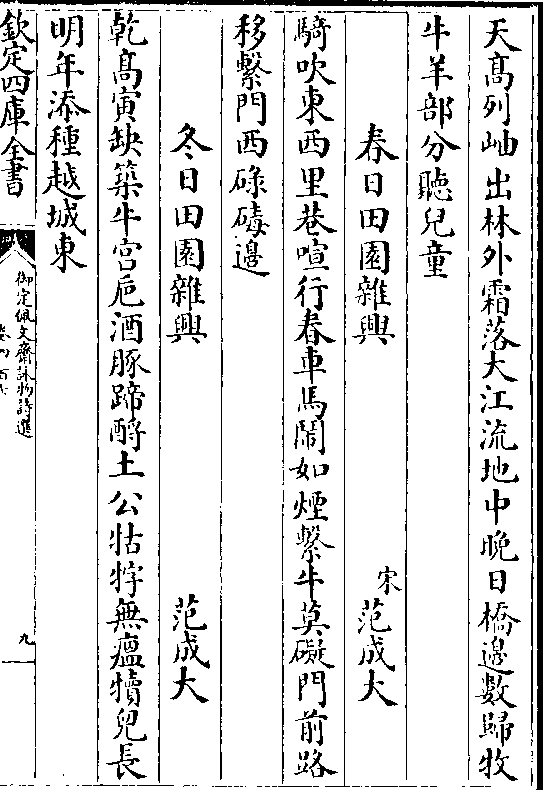 天髙列岫出林外霜落大江流地中晚日橋邊數歸牧
牛羊部分聽兒童
春日田園雜興
宋范成大
騎吹東西里巷喧行春車馬鬧如煙繫牛莫礙門前路
移繫門西碌碡邊
冬日田園雜興
范成大
乾髙寅缺築牛宫巵酒豚蹄酹土公牯牸無瘟犢兒長
明年添種越城東
欽定四庫全書
御定佩文齋詠物詩選
九